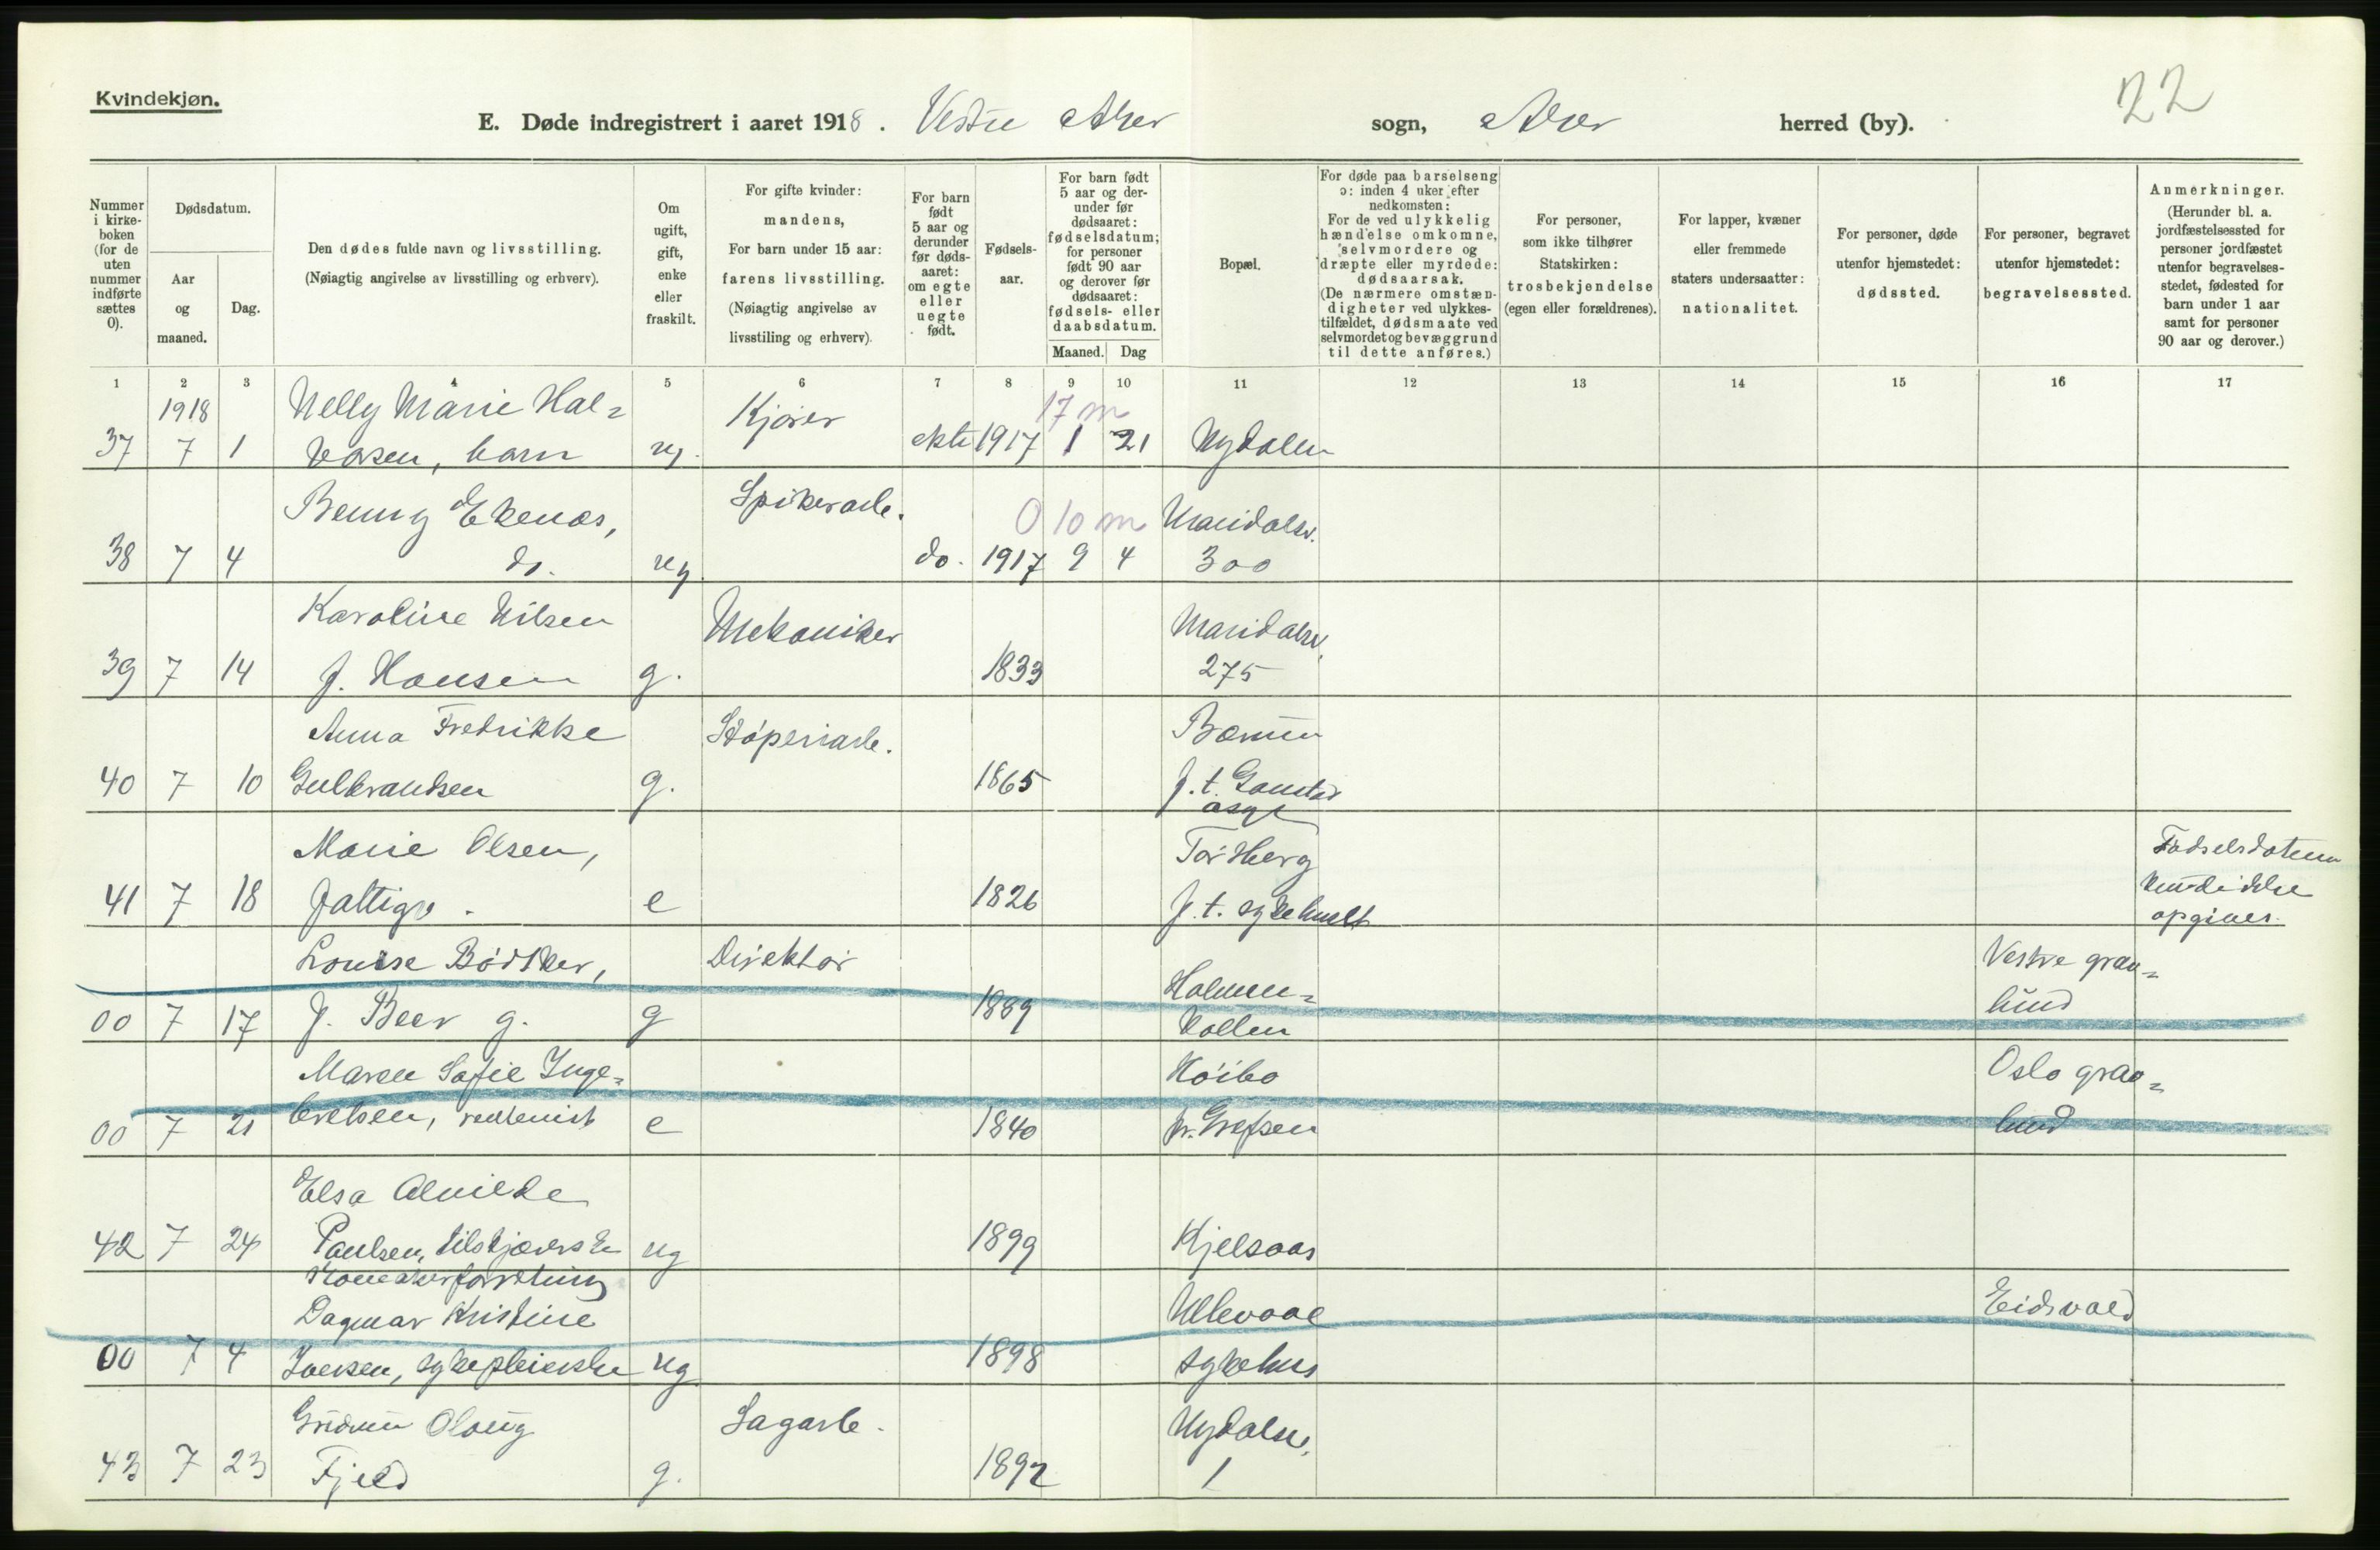 22
Kvindekjøn.
E. Døde indregistrert i aaret 1918. Vestre Aker sogn, Aker herred (by).
Nummer i kirkeboken (for de uten nummer indførte sættes 0).
Dødsdatum.
Aar og maaned.
Dag.
Den dødes fulde navn og livsstilling. (Nøiagtig angivelse av livsstilling og erhverv).
Om ugift, gift, enke eller fraskilt.
For gifte kvinder: mandens, For barn under 15 aar: farens livsstilling. (Nøiagtig angivelse av livsstiling og erhverv).
For barn født 5 aar og derunder før dødsaaret: om egte eller uegte født.
Fødselsaar.
For barn født 5 aar og derunder før dødsaaret: fødselsdatum; for personer født 90 aar og derover før dødsaaret: fødsels- eller daabsdatum.
Maaned. Dag
Bopæl.
For døde paa barselseng ɔ: inden 4 uker efter nedkomsten: For de ved ulykkelig hændelse omkomne, selvmordere og dræpte eller myrdede: dødsaarsak. (De nærmere omstændigheter ved ulykkestilfældet, dødsmaate ved selvmordet og bevæggrund til dette anføres.)
For personer, som ikke tilhører Statskirken: trosbekjendelse (egen eller forældrenes).
For lapper, kvæner eller fremmede staters undersaatter: nationalitet.
For personer, døde utenfor hjemstedet: dødssted.
For personer, begravet utenfor hjemstedet: begravelsessted.
Anmerkninger. (Herunder bl. a. jordfæstelsessted for personer jordfæstet utenfor begravelsesstedet, fødested for barn under 1 aar samt for personer 90 aar og derover.)
1 2 3 4 5 6 7 8 9 10 11 12 13 14 15 16 17
1918 Nelly Marie Hal= Kjører 17 m
37 7 1 vorsen, barn ug. ekte 1917 1 21 Nydalen
Benny Ekenæs, Spikerarb. 0 10 m Maridalsv.
38 7 4 do. ug. do. 1917 9 4 300
Karoline Nilsen Mekaniker Maridalsv.
39 7 14 f. Hansen g. 1833 275
Anna Fredrikke Støperiarb. Bærum
40 7 10 Gulbrandsen g. 1865 f. t. Gaustad
asyl
Marie Olsen, Torsherg Fødselsdatum
41 7 18 fattig. e 1826 f. t. sykehuset kun de ikke
opgives.
Louise Bødtker, Direktør Holmen= Vestre grav=
00 7 17 f. Beer g. g 1889 kollen lund
Maren Sofie Inge= Høibo Oslo grav=
00 7 21 bretsen, rentenist e 1840 pr. Grefsen lund
Elsa Alvilde
42 7 24 Paulsen, tilskjærerske ug 1899 Kjelsaas
Dagmar Kristine Ullevaal Eidsvold
00 7 4 Iversen, sykepleierske ug 1898 sykehus
Gudrun Olaug Sagarb. Nydalsv.
43 7 23 Fjeld g. 1892 1